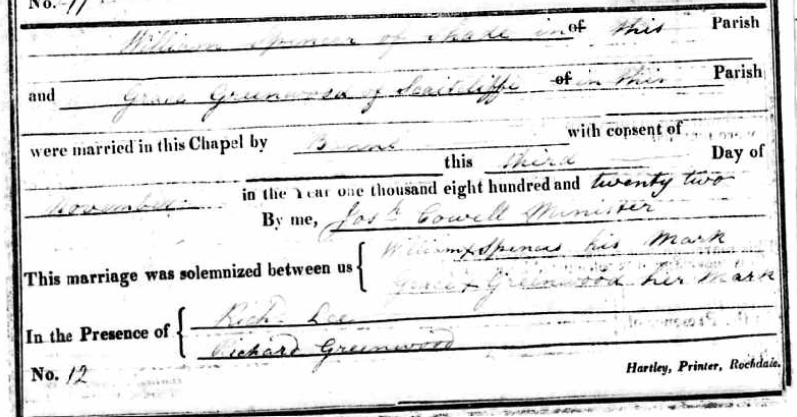 No. 11
William Spencer of Shade in of this Parish
and Grace Greenwood of Scaitcliffe of in this Parish
were married in this Chapel by Banns with consent of
this third Day of
November in the Year one thousand eight hundred and twenty two
By me, Josh Cowell Minister
This marriage was solemnized between us { William x Spencer his Mark
Grace x Greenwood her Mark
In the Presence of { Richd. Lee
Richard Greenwood
No. 12
Hartley, Printer, Rochdale.